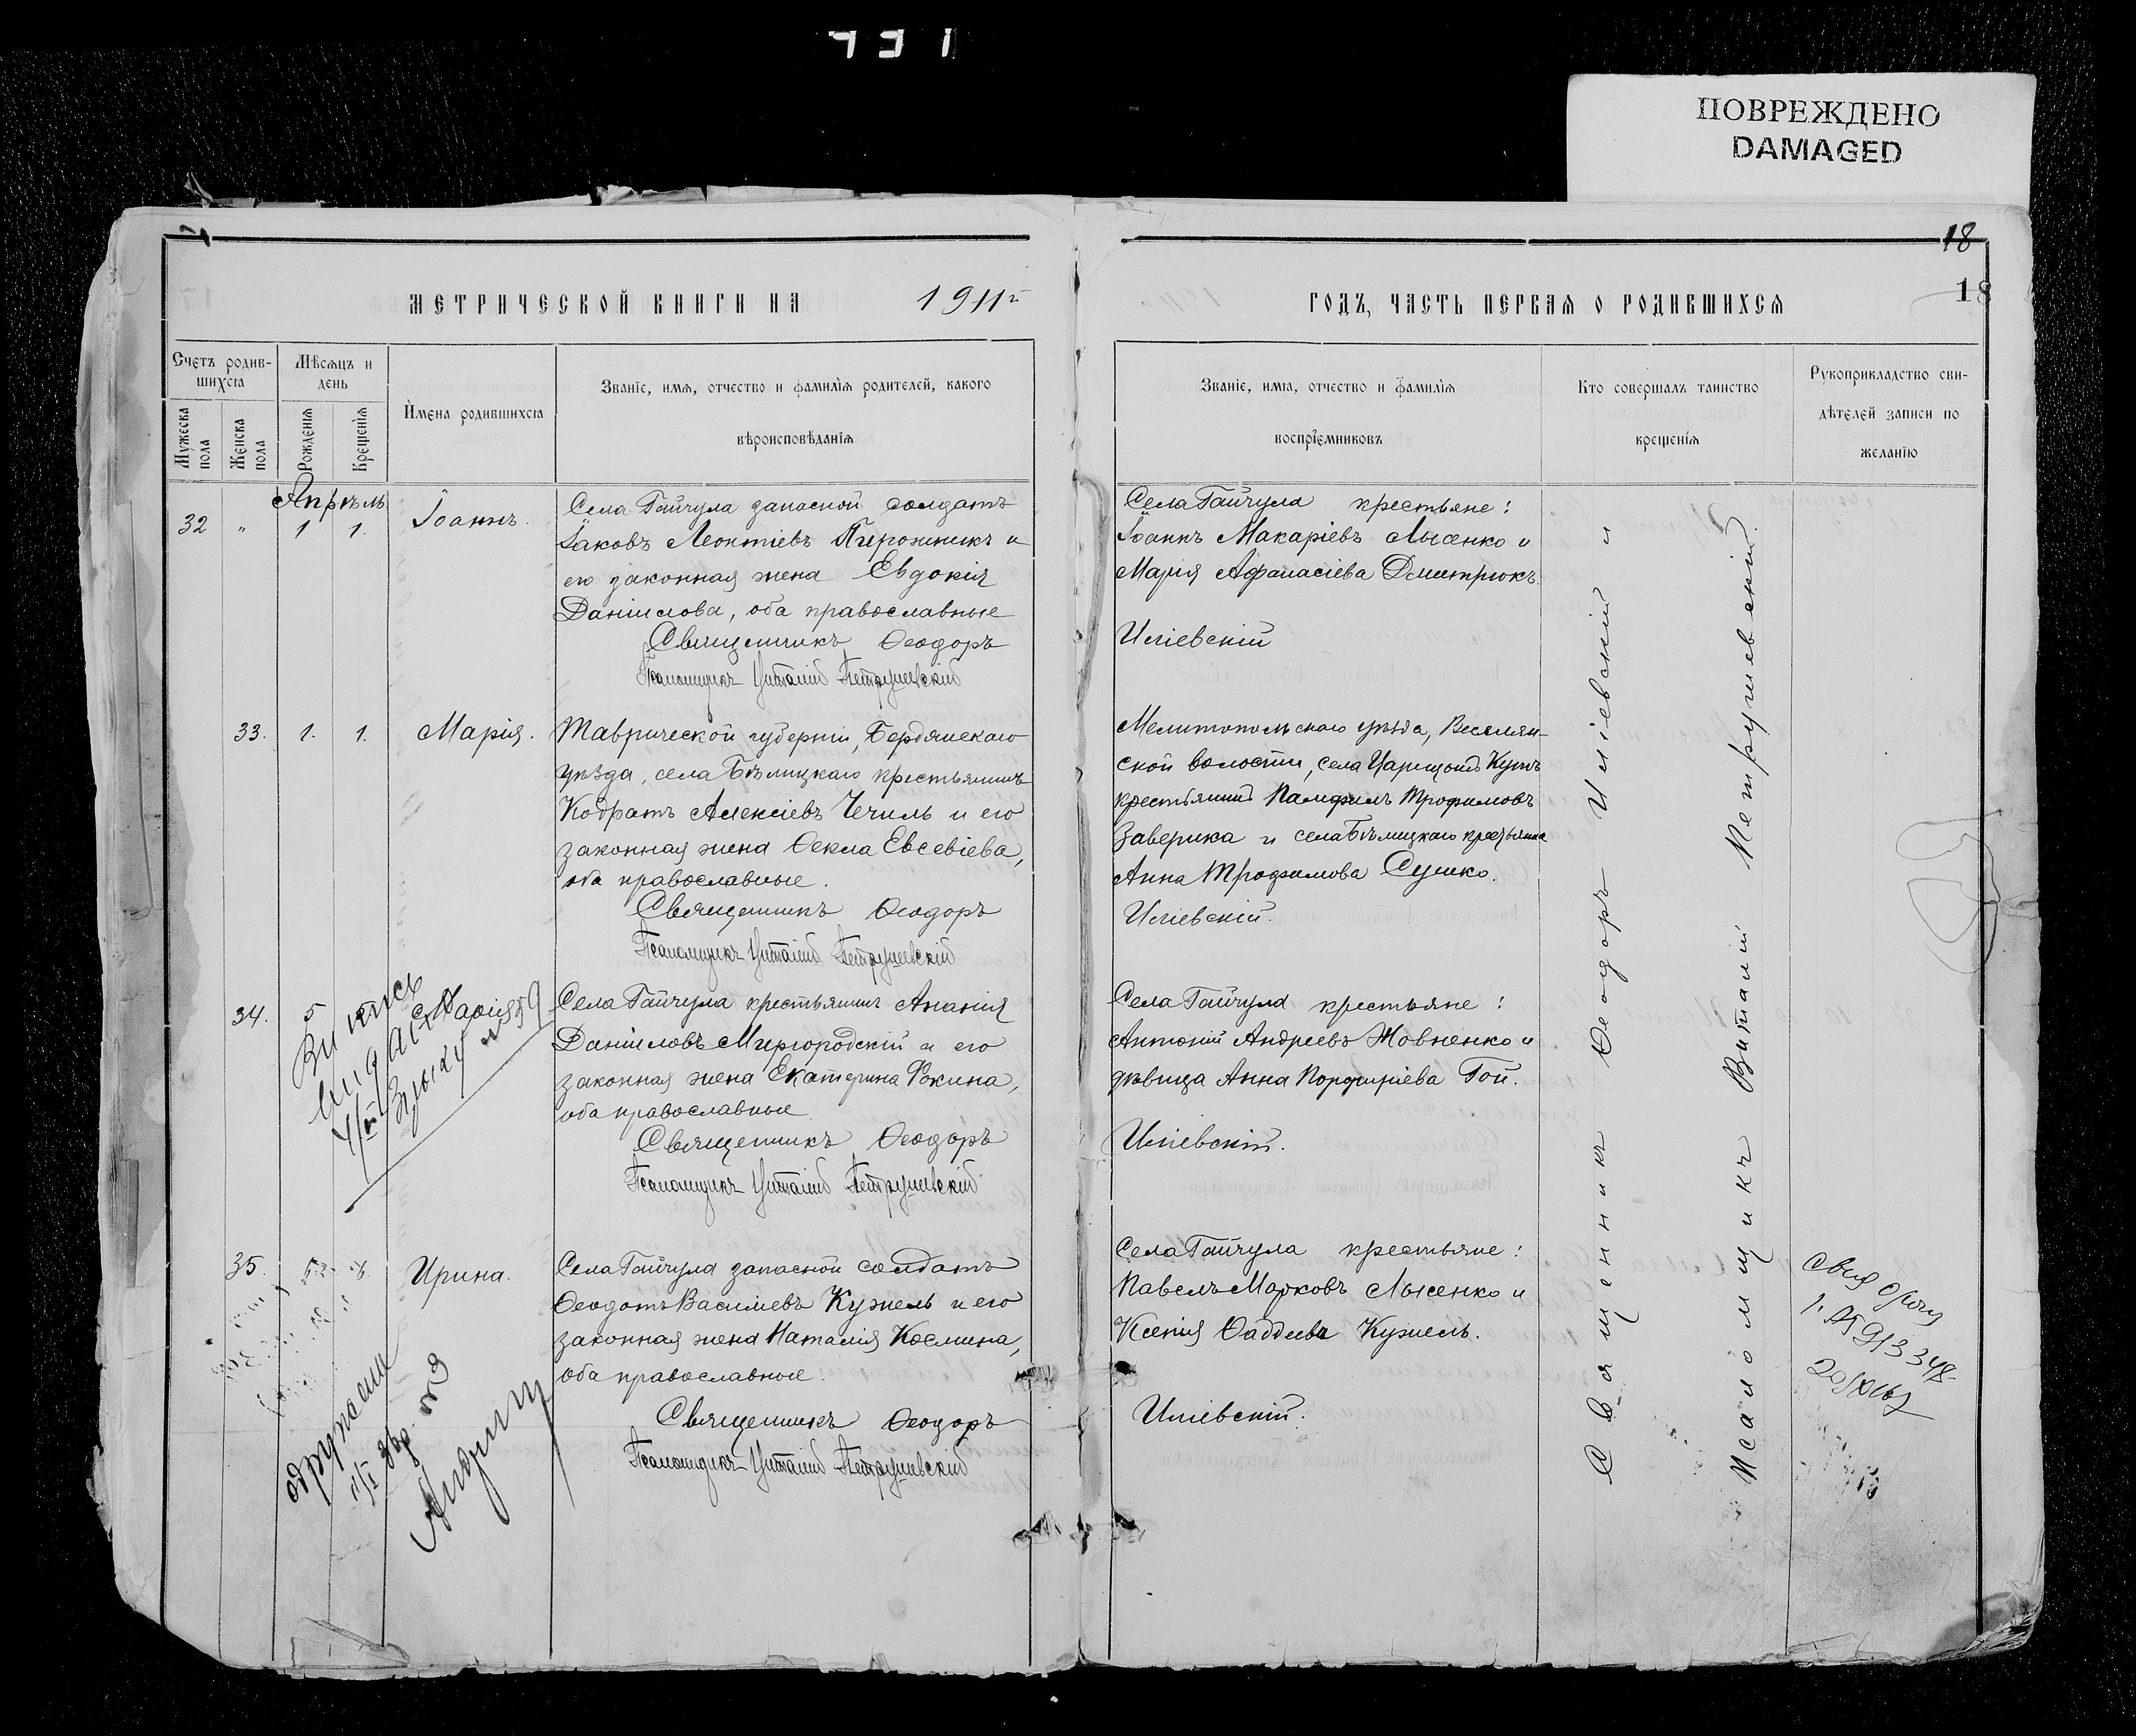 ПОВРЕЖДЕНО
DAMAGED
18
18
МЕТРИЧЕСКОЙ КНИГИ НА 1911 г
ГОДЪ, ЧАСТЬ ПЕРВАЯ О РОДИВШИХСЯ
Счетъ родив-
шихся
Мужеска пола
Женска пола
Мѣсяцъ и
день
Рожденія
Крещенія
Имена родившихся
Званіе, имя, отчество и фамилія родителей, какого
вѣроисповѣданія
Званіе, имя, отчество и фамилія
воспріемниковъ
Кто совершалъ таинство
крещенія
Рукоприкладство сви-
дѣтелей записи по
желанію
Апрѣль
32 " 1 1. Іоаннъ.
Села Гайчула запасной солдатъ
Іаковъ Леонтіевъ Пирожникъ и
его законная жена Евдокія
Даніилова, оба православные
Священникъ Ѳеодоръ
Псаломщикъ Виталій Петрушевскій
Села Гайчула крестьяне:
Іоаннъ Макаріевъ Лысенко и
Марія Афанасіева Дмитрюкъ.
Иліевскій
33. 1. 1. Марія.
Таврической губерніи, Бердянскаго
уѣзда, села Бѣлицкаго крестьянинъ
Кодратъ Алексіевъ Чечиль и его
законная жена Ѳекла Евсевіева,
оба православные.
Священникъ Ѳеодоръ
Псаломщикъ Виталій Петрушевскій
Мелитопольскаго уѣзда, Веселян-
ской волости, села Царицынъ Кутъ
крестьянинъ Памфилъ Трофимовъ
Заверика и села Бѣлицкаго крестьянка
Анна Трофимова Сушко.
Иліевскій.
34. 5 Марія
Села Гайчула крестьянинъ Ананія
Даніиловъ Миргородскій и его
законная жена Екатерина Фокина,
оба православные
Священникъ Ѳеодоръ
Псаломщикъ Виталій Петрушевскій
Села Гайчула крестьяне:
Антоній Андреевъ Жовненко и
дѣвица Анна Порфиріева Гой.
Иліевскій.
35. 5. 8. Ирина.
Села Гайчула запасной солдатъ
Ѳеодотъ Василіевъ Кужель и его
законная жена Наталія Космина,
оба православные.
Священникъ Ѳеодоръ
Псаломщикъ Виталій Петрушевскій
Села Гайчула крестьяне:
Павелъ Марковъ Лысенко и
Ксенія Ѳаддеева Кужель.
Иліевскій.
Священникъ Ѳеодоръ Иліевскій и
Псаломщикъ Виталій Петрушевскій.
913348